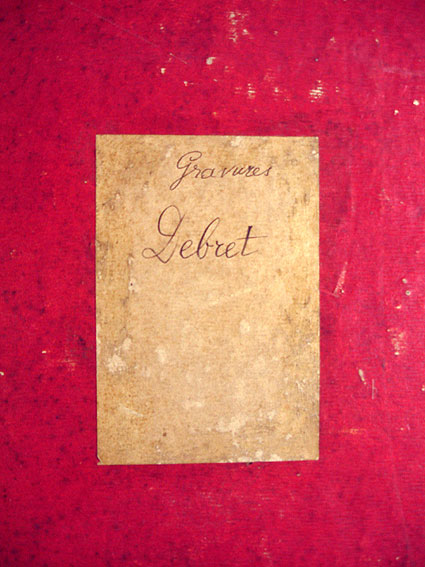 Gravures
Debret